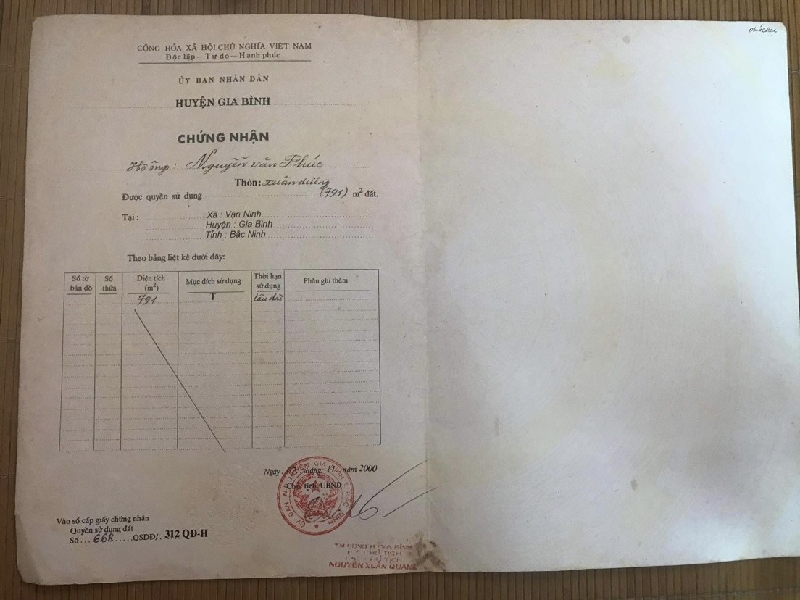 CỘNG HÒA XÃ HỘI CHỦ NGHĨA VIỆT NAM
Độc lập - Tự do - Hạnh phúc
ỦY BAN NHÂN DÂN
HUYỆN GIA BÌNH
CHỨNG NHẬN
Hộ ông: Nguyễn Văn Phúc
Thôn: Xuân dương
Được quyền sử dụng (791) m² đất.
Tại: Xã : Vạn Ninh
Huyện : Gia Bình
Tỉnh : Bắc Ninh
Theo bảng liệt kê dưới đây:
Số tờ bản đồ Số thửa Diện tích (m²) Mục đích sử dụng Thời hạn sử dụng Phần ghi thêm
791 T lâu dài
Ngày tháng năm 2000
Chủ tịch UBND
Vào sổ cấp giấy chứng nhận
Quyền sử dụng đất
Số... 668 ...QSDĐ/. 312 QĐ-H
NGUYỄN XUÂN QUANG